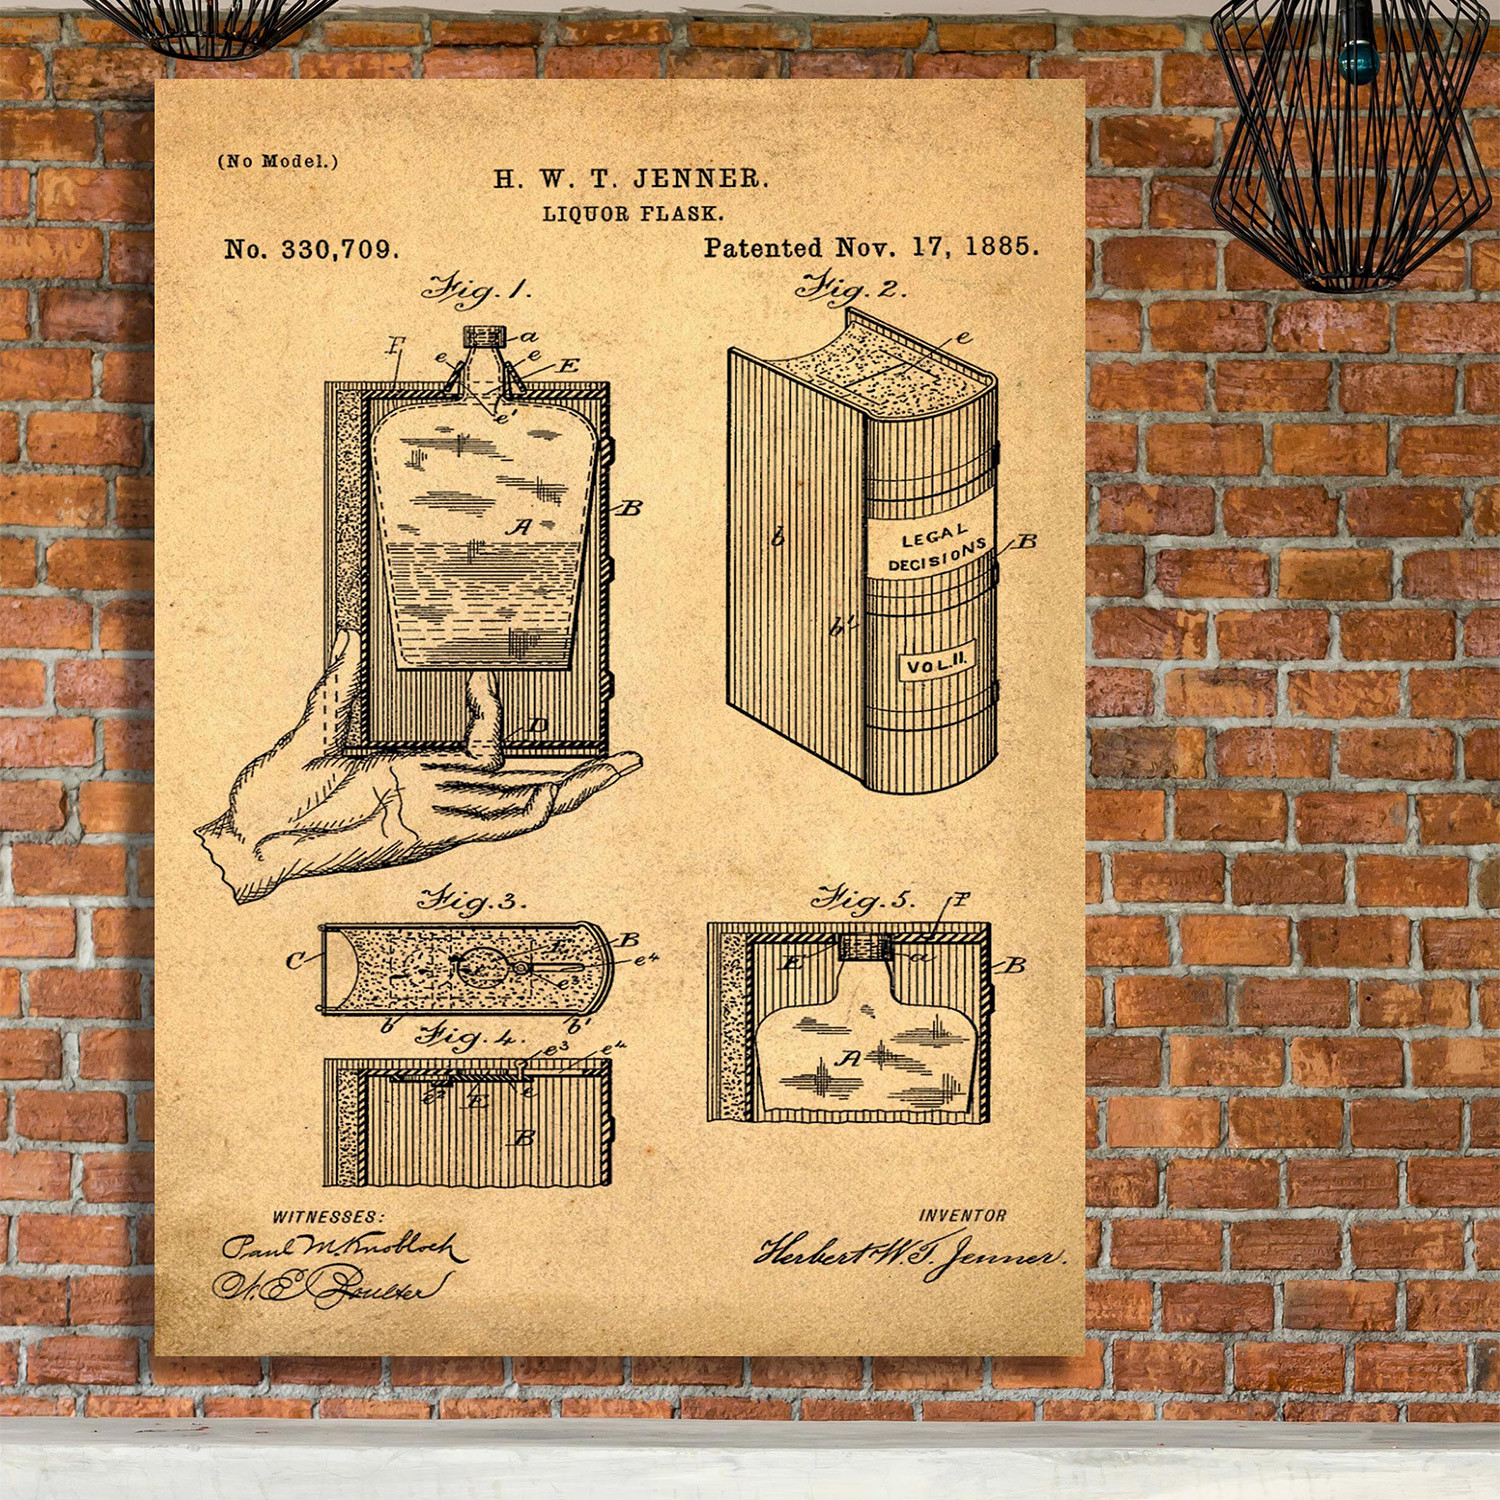 (No Model.)
H. W. T. JENNER.
LIQUOR FLASK.
No. 330,709.
Patented Nov. 17, 1885.
Fig. 1.
F
a
e
e
E
e'
A
B
D
Fig. 2.
e
b
LEGAL
DECISIONS
B
b'
VOL. II.
Fig. 3.
C
E
B
e⁴
e³
b
b'
Fig. 4.
e³
e⁴
e²
E
e
B
Fig. 5.
F
E
a
B
A
WITNESSES:
Paul M. Knobloch
W. E. Boulter
INVENTOR
Herbert W. T. Jenner.